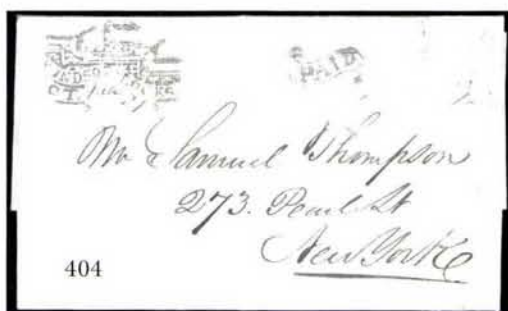 PAID
Mr Samuel Thompson
273. Pearl St
New York
404